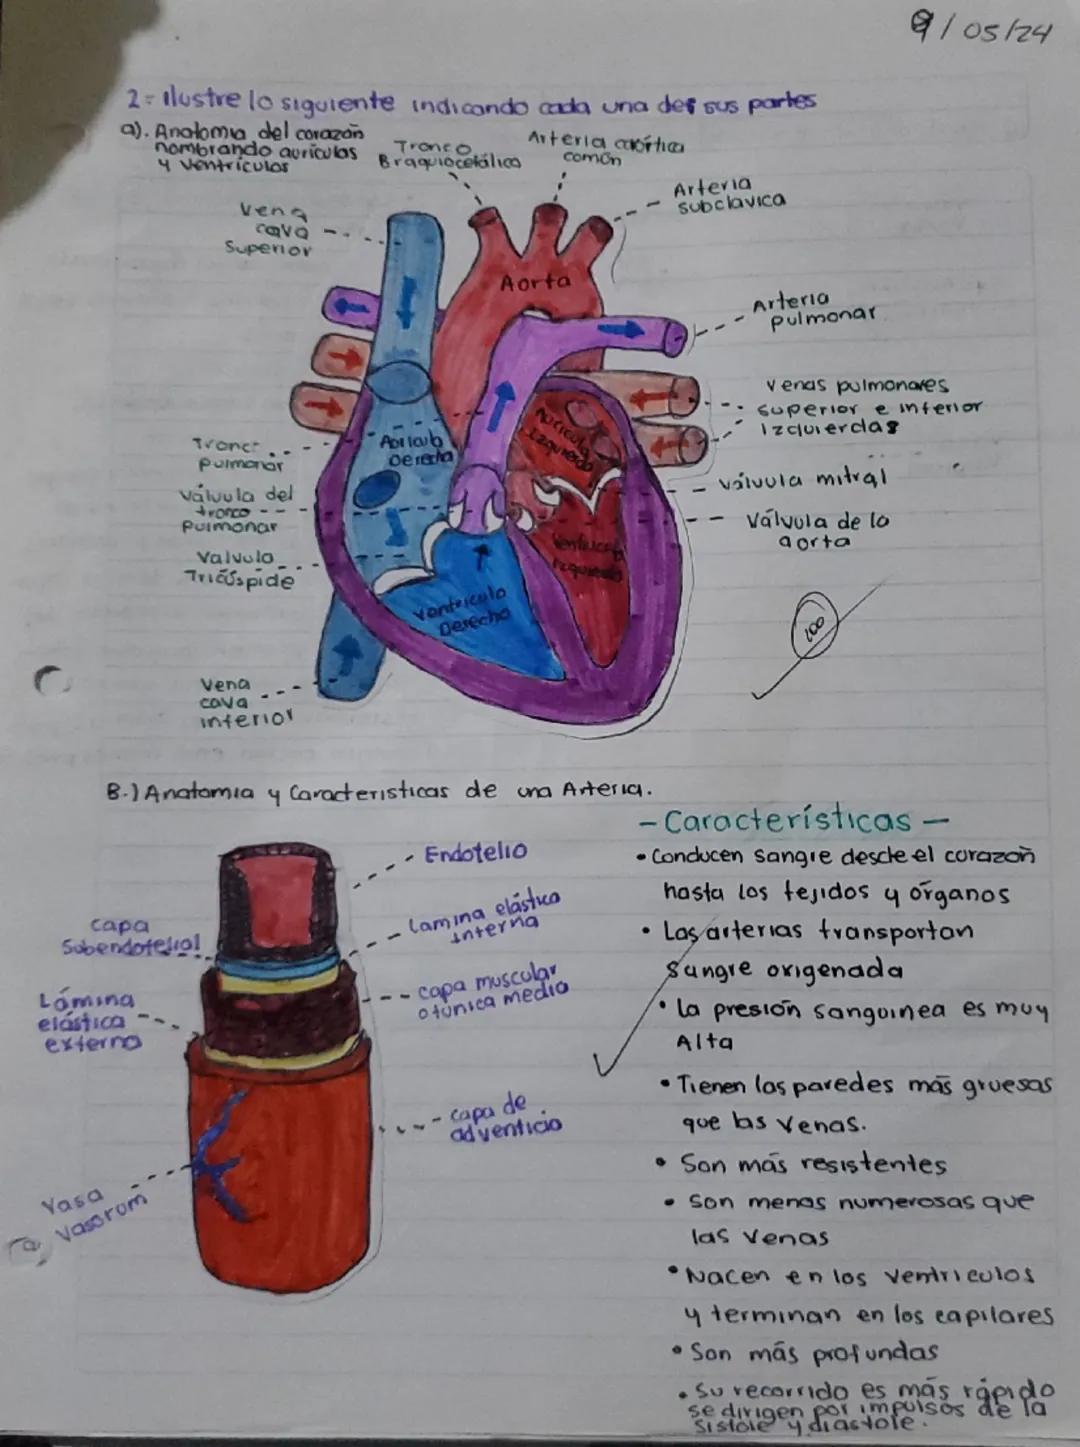 9/05/24
2= ilustre lo siguiente indicando cada una des sus partes
a). Anatomia del corazón
nombrando aurículas
y ventrículos
Tronco
Braquiocefálico
Arteria caórtica
común
Arteria
subclavica
Vena
cava
Superior
Aorta
Arteria
pulmonar
Venas pulmonares
superior e inferior
Izquierdas
Aurícula
Izquierda
Derecha
Tronco
pulmonar
Válvula del
tronco
Pulmonar
Valvula
Tricúspide
válvula mitral
Válvula de la
aorta
Ventriculo
Izquierdo
Ventriculo
Derecho
100
Vena
cava
inferior
B.) Anatomia y Caracteristicas de una Arteria.
- Características -
Endotelio
Lamina elástica
Interna
capa
Subendotelial
capa muscular
o túnica media
Lámina
elástica
externa
capa de
adventicia
Vasa
Vasorum
• Conducen sangre desde el corazón
hasta los tejidos y órganos
• Las arterias transportan
sangre oxigenada
• La presión sanguinea es muy
Alta
• Tienen las paredes más gruesas
que las venas.
• Son más resistentes
• Son menos numerosas que
las venas
• Nacen en los ventriculos
y terminan en los capilares
• Son más profundas
• Su recorrido es más rápido
se dirigen por impulsos de la
sistole y diastole.